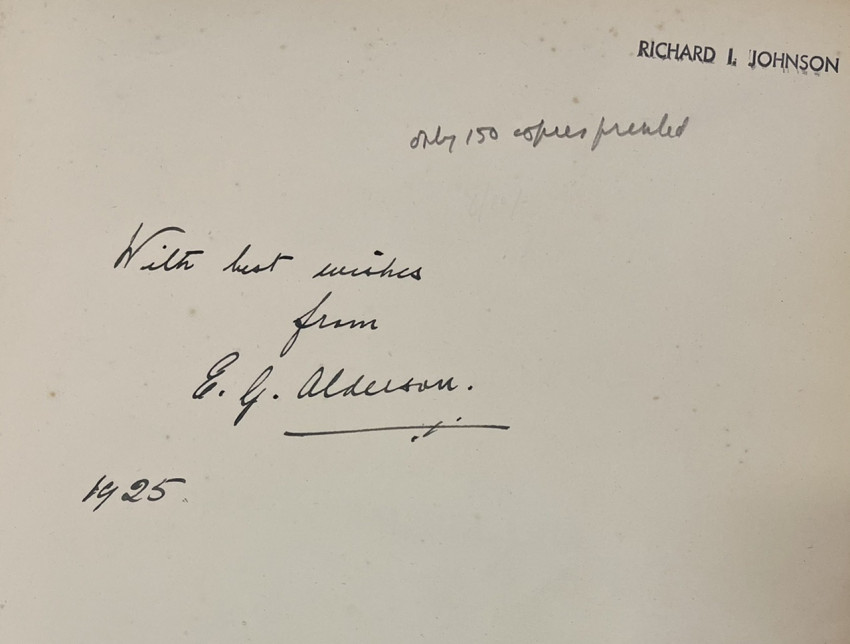 RICHARD I. JOHNSON
only 150 copies printed
With best wishes
from
E. G. Alderson.
1925.